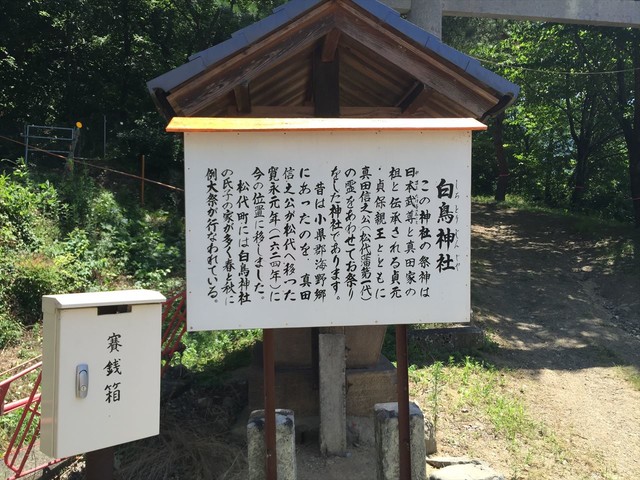 白鳥神社
しらとりじんじゃ
この神社の祭神は
日本武尊と真田家の
祖と伝承される貞元
・貞保親王とともに
真田信之公(松代藩第一代)
の霊をあわせてお祭り
をした神社であります。
昔は小県郡海野郷
にあったのを、真田
信之公が松代へ移った
寛永元年(一六二四年)に
今の位置に移しました。
松代町には白鳥神社
の氏子の家が多く春と秋に
例大祭が行なわれている。
賽銭箱